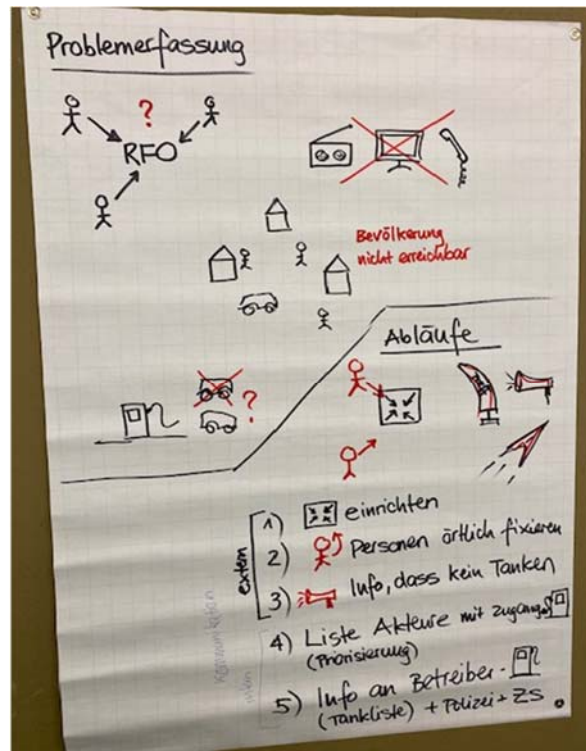 Problemerfassung
?
RFO
Bevölkerung
nicht erreichbar
Abläufe
?
extern
1) einrichten
2) Personen örtlich fixieren
3) Info, dass kein Tanken
4) Liste Akteure mit Zugang
(Priorisierung)
5) Info an Betreiber -
(Tankliste) + Polizei + ZS
Kommunikation